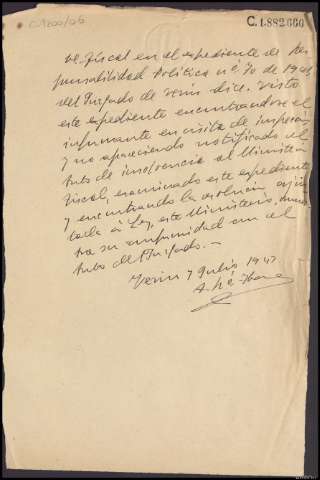 C.1.882.666
El Fiscal en el expediente de Res-
ponsabilidad Politica nº 70 de 194
del Juzgado de Verin dice: Visto
este expediente encontrandose el
informante en visita de inspeccion
y no apareciendo notificado el
Auto de insolvencia al Ministerio
Fiscal, examinado este expediente
y encontrando la resolucion ajus
tada a Ley, este Ministerio, mues
tra su conformidad con el
Auto del Juzgado.—
Verin 7 Julio 194